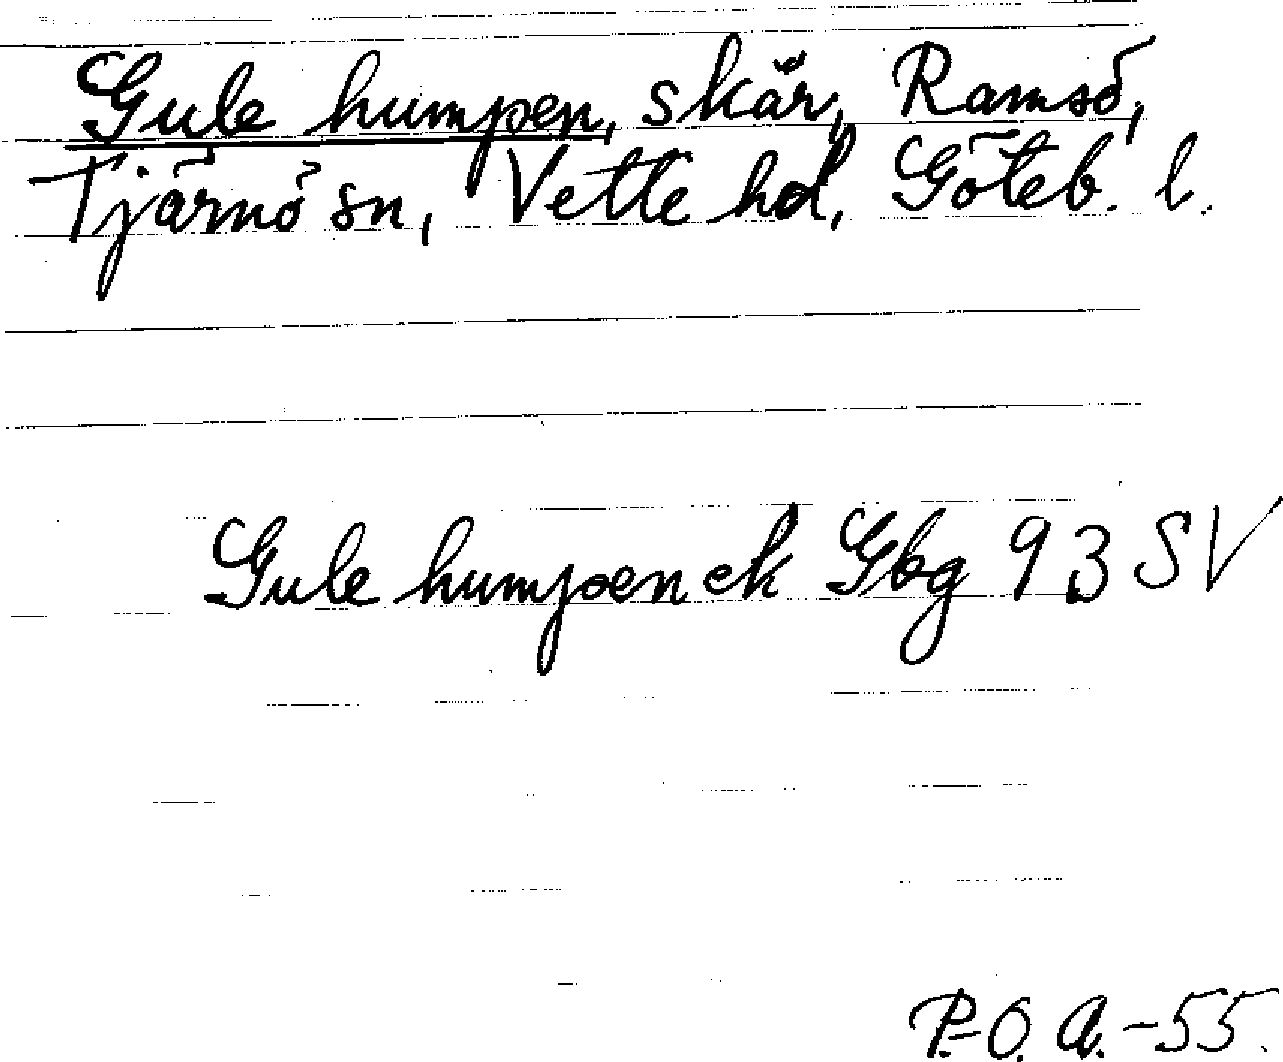 Gule humpen, skär, Ramsö,
Tjärnö sn, Vette hd, Göteb. l.
Gule humpen ek Gbg 93 SV
P.-O. A. -55.